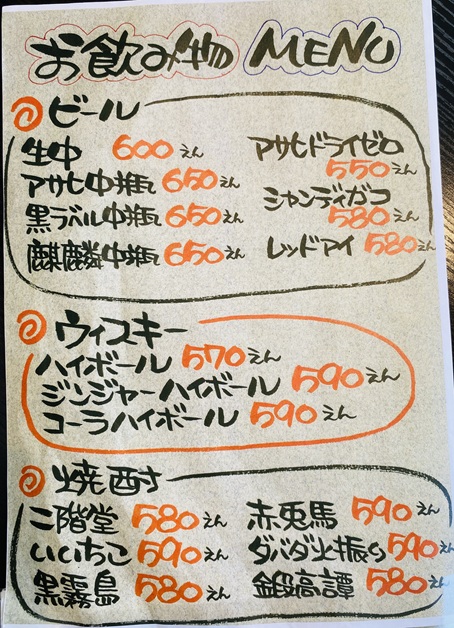 お飲み物 MENU
ビール
生中 600えん
アサヒ中瓶 650えん
黒ラベル中瓶 650えん
麒麟中瓶 650えん
アサヒドライゼロ
550えん
シャンディガフ
580えん
レッドアイ 580えん
ウィスキー
ハイボール 570えん
ジンジャーハイボール 590えん
コーラハイボール 590えん
焼酎
二階堂 580えん
いいちこ 590えん
黒霧島 580えん
赤兎馬 590えん
ダバダ火振り 590えん
鍛高譚 580えん